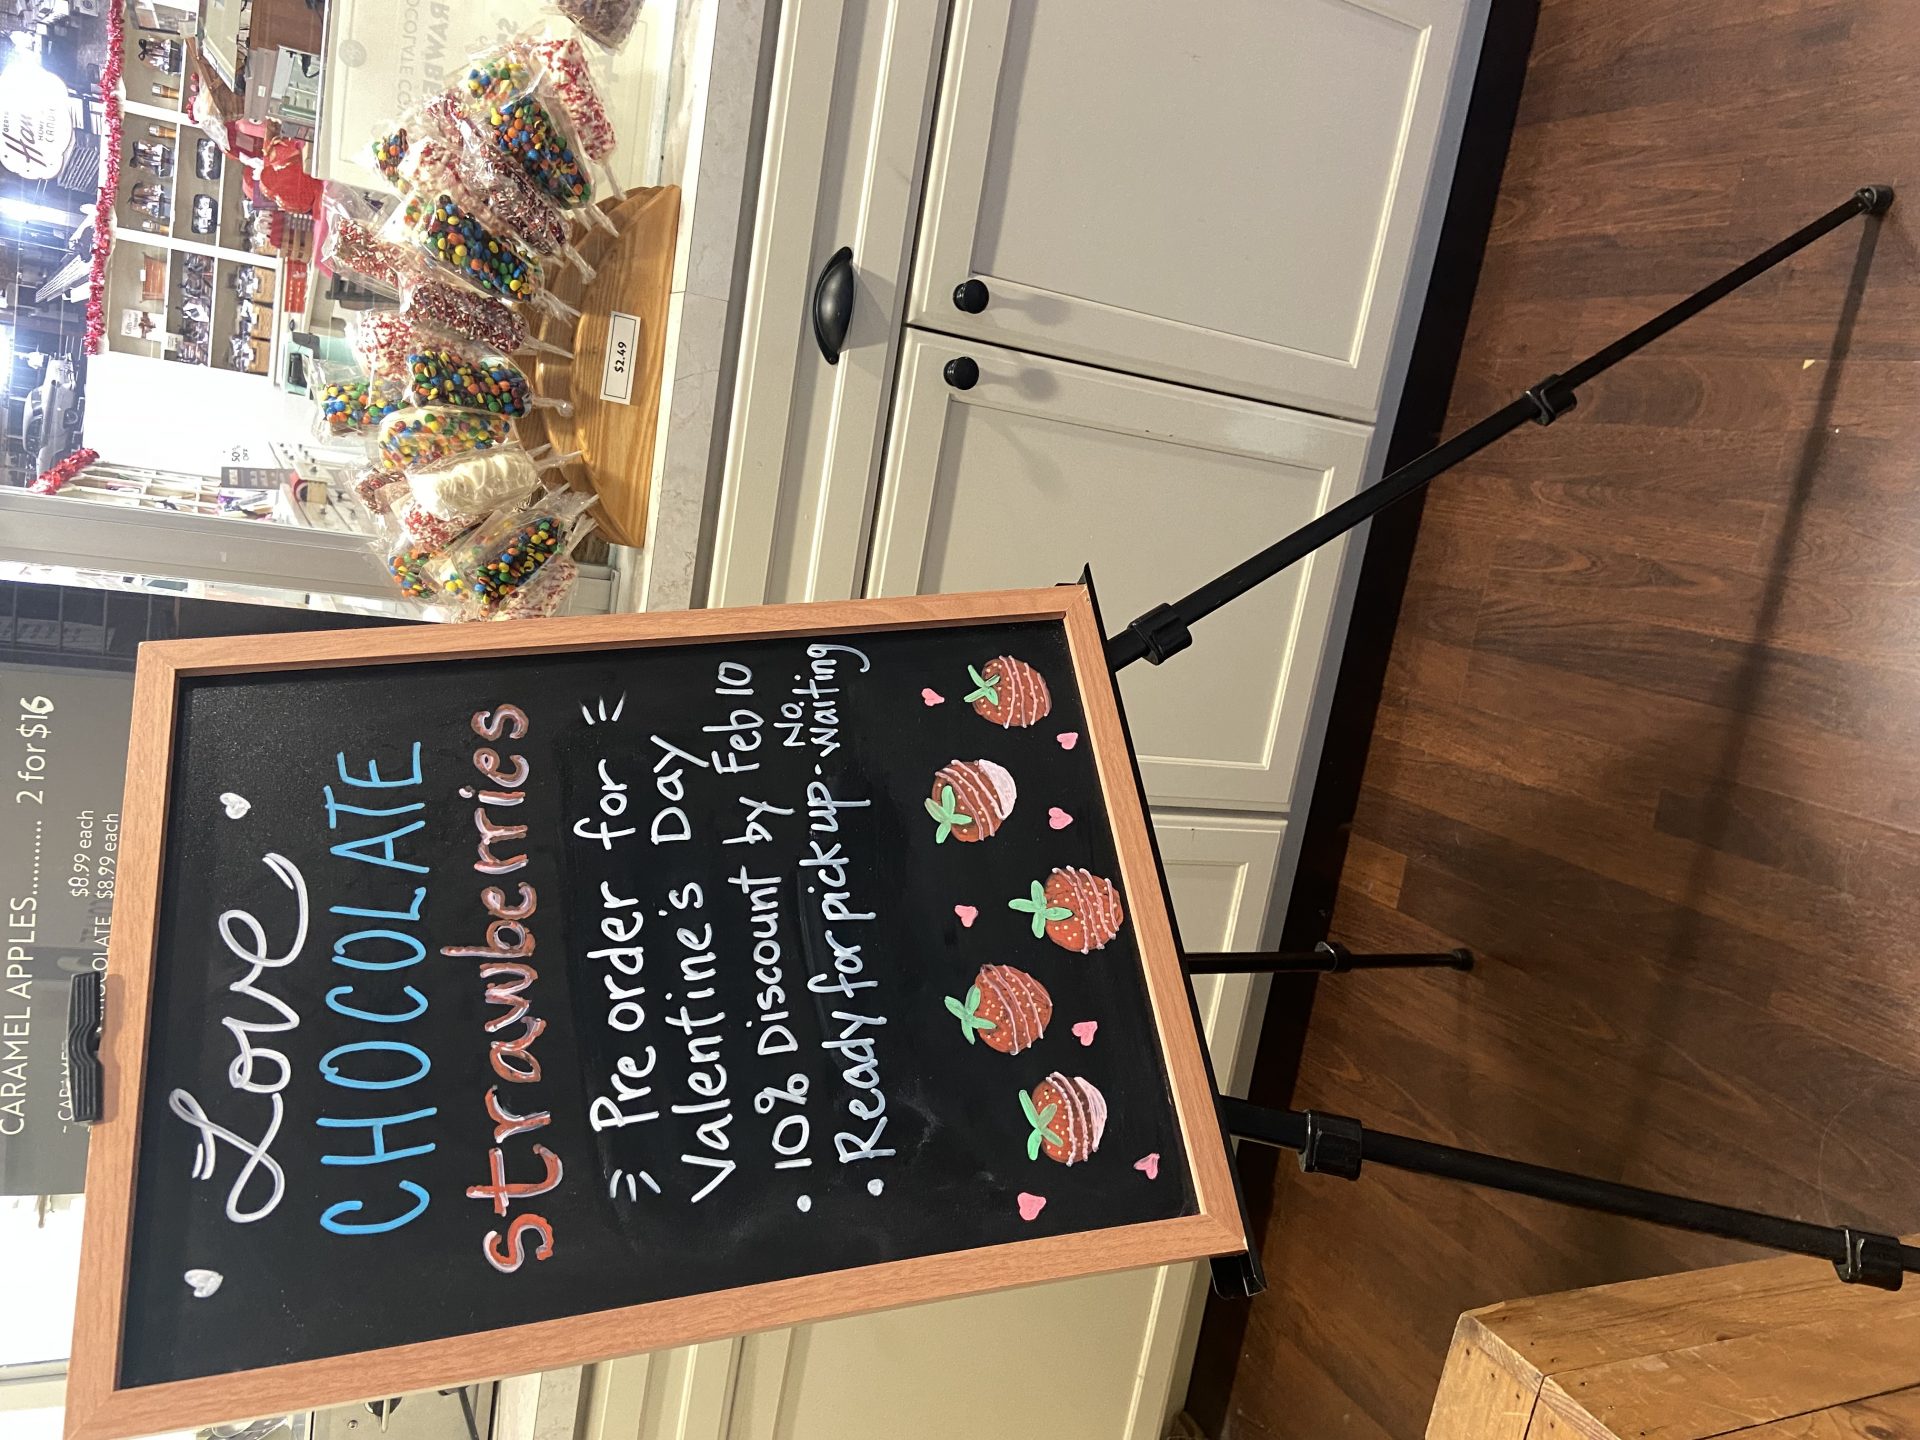 Love
CHOCOLATE
strawberries
Pre order for
Valentine's Day
• 10% Discount by Feb 10
• Ready for pick up - No Waiting
CARAMEL APPLES........... 2 for $16
$8.99 each
$8.99 each
$2.49
50% OFF
HOME
CANDY